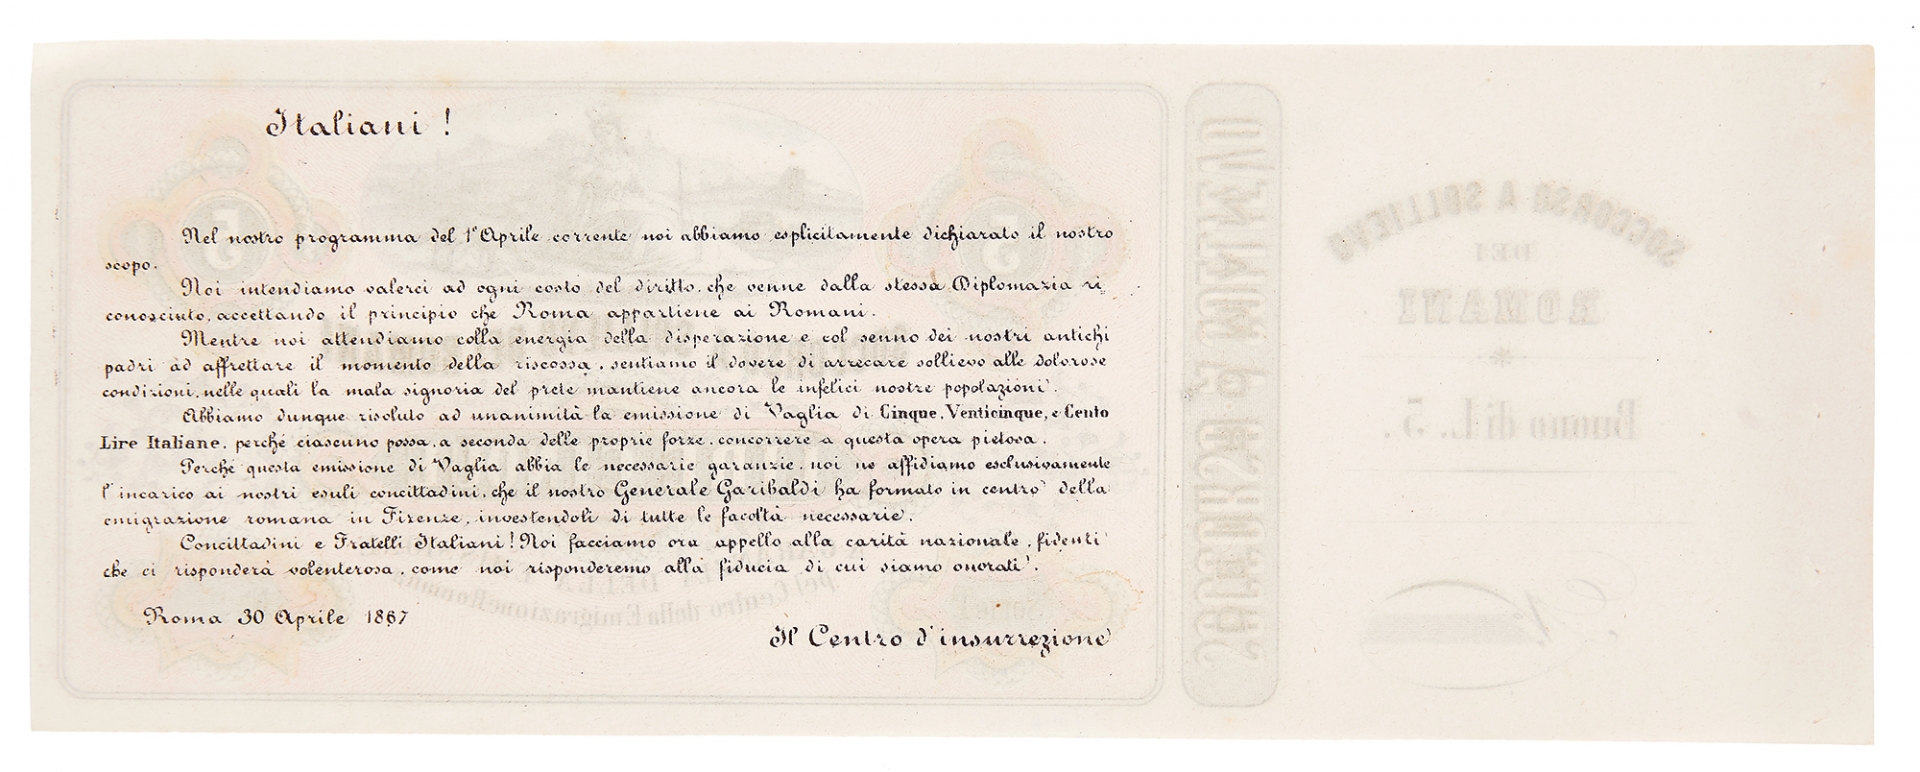 Italiani !
Nel nostro programma del 1° Aprile corrente noi abbiamo esplicitamente dichiarato il nostro
scopo.
Noi intendiamo valerci ad ogni costo del diritto, che venne dalla stessa Diplomazia ri_
conosciuto, accettando il principio che Roma appartiene ai Romani.
Mentre noi attendiamo colla energia della disperazione e col senno dei nostri antichi
padri ad affrettare il momento della riscossa, sentiamo il dovere di arrecare sollievo alle dolorose
condizioni, nelle quali la mala signoria del prete mantiene ancora le infelici nostre popolazioni.
Abbiamo dunque risoluto ad unanimità la emissione di Vaglia di Cinque, Venticinque, e Cento
Lire Italiane, perché ciascuno possa, a seconda delle proprie forze, concorrere a questa opera pietosa.
Perché questa emissione di Vaglia abbia le necessarie garanzie, noi ne affidiamo esclusivamente
l'incarico ai nostri esuli concittadini, che il nostro Generale Garibaldi ha formato in centro della
emigrazione romana in Firenze, investendoli di tutte le facoltà necessarie.
Concittadini e Fratelli Italiani! Noi facciamo ora appello alla carità nazionale, fidenti
che ci risponderà volenterosa, come noi risponderemo alla fiducia di cui siamo onorati.
Roma 30 Aprile 1867
Il Centro d'insurrezione
SOCCORSO A SOLLIEVO
DEI
ROMANI
Buono di L. 5.